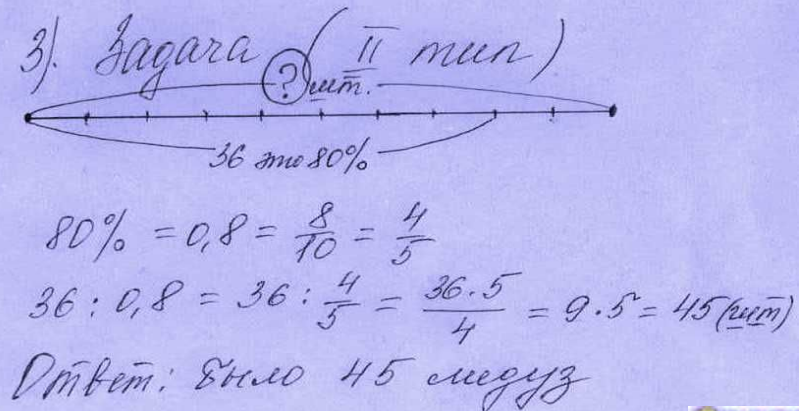 3). Задача (II тип)
? шт.
36 это 80%
80% = 0,8 = 8/10 = 4/5
36 : 0,8 = 36 : 4/5 = 36·5/4 = 9·5 = 45 (шт)
Ответ: было 45 медуз